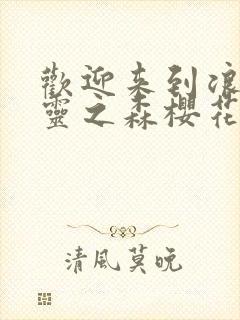 歡迎来到浪
靈之森櫻花
清風莫晚